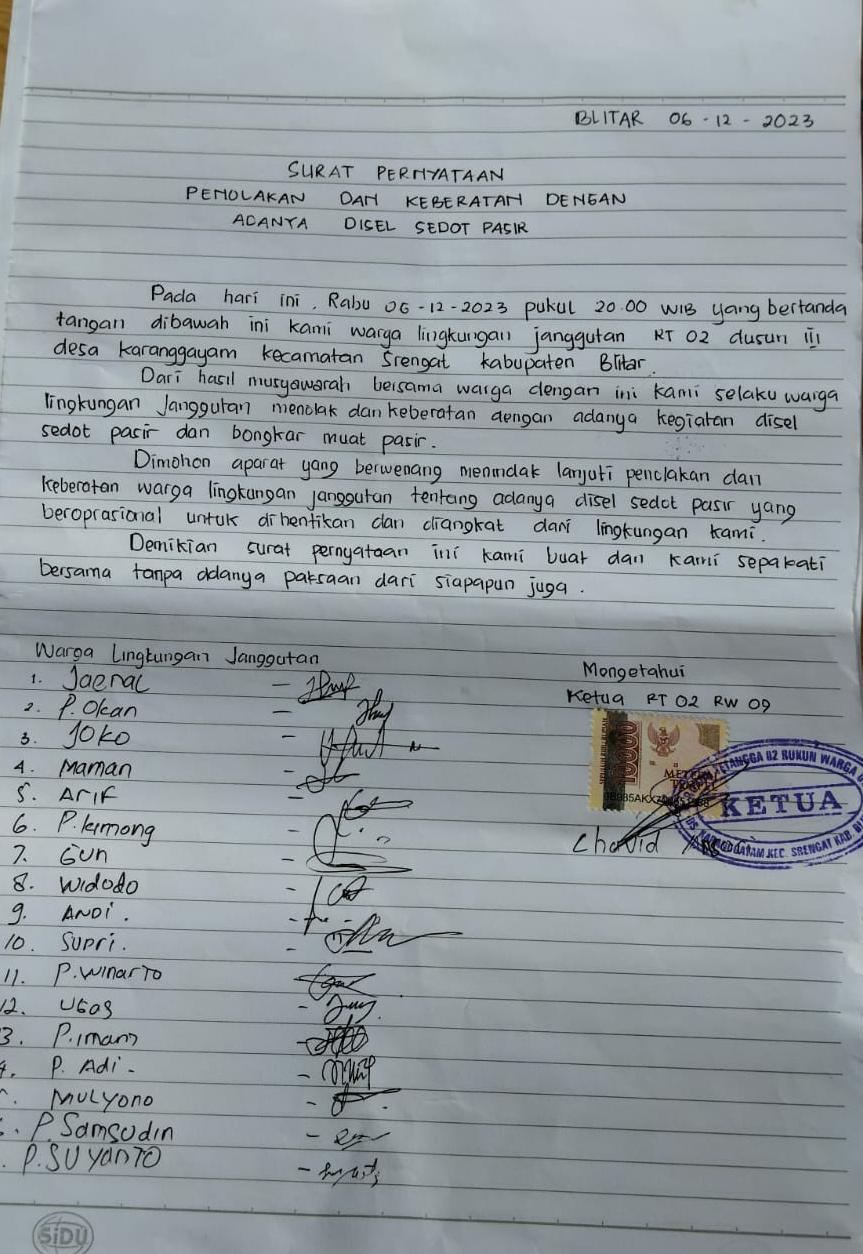 BLITAR 06 - 12 - 2023
SURAT PERNYATAAN
PENOLAKAN DAN KEBERATAN DENGAN
ADANYA DISEL SEDOT PASIR
Pada hari ini, Rabu 06-12-2023 pukul 20.00 WIB yang bertanda
tangan dibawah ini kami warga lingkungan janggutan RT 02 dusun III
desa Karanggayam kecamatan Srengat kabupaten Blitar.
Dari hasil musyawarah bersama warga dengan ini kami selaku warga
lingkungan Janggutan menolak dan keberatan dengan adanya kegiatan disel
sedot pasir dan bongkar muat pasir.
Dimohon aparat yang berwenang menindak lanjuti penolakan dan
keberatan warga lingkungan janggutan tentang adanya disel sedot pasir yang
beroprasional untuk dihentikan dan diangkat dari lingkungan kami.
Demikian surat pernyataan ini kami buat dan kami sepakati
bersama tanpa adanya paksaan dari siapapun juga.
Warga Lingkungan Janggutan
Mengetahui
Ketua RT 02 RW 09
1. Jaenal
2. P. Okan
3. JOKO
4. Maman
5. Arif
6. P. kimong
7. Gun
8. Widodo
9. ANDI.
10. Supri.
11. P. Winarto
12. Ugos
3. P. imam
4. P. Adi -
MULYONO
P. Samsudin
P. SUYANTO
10000
KETUA
KEC. SRENGAT KAB.
Chavid
SiDU